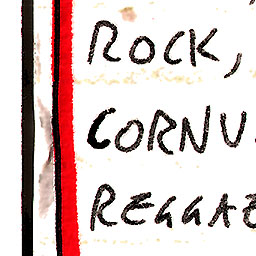 ROCK,
CORNU
REGGAE